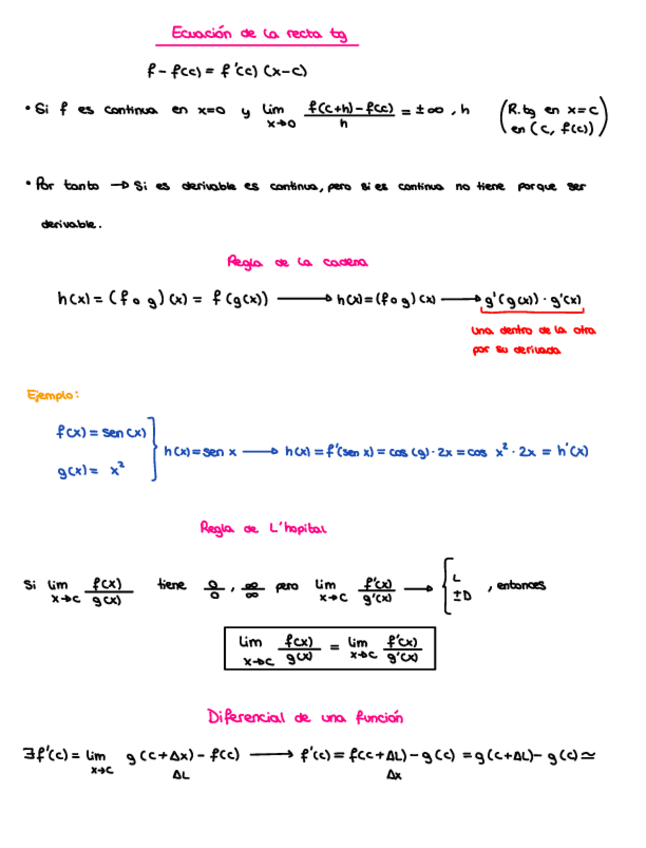 Ecuación de la recta tg
f - f(c) = f'(c) (x-c)
• Si f es continua en x=0 y lim x→0 f(c+h)-f(c) / h = ±∞, h (R.tg en x=c en (c, f(c)))
• Por tanto → Si es derivable es continua, pero si es continua no tiene porque ser
derivable.
Regla de la cadena
h(x) = (f o g)(x) = f(g(x)) → h(x) = (f o g)(x) → g'(g(x)) · g'(x)
una dentro de la otra
por su derivada
Ejemplo:
f(x) = sen(x)
g(x) = x²
h(x) = sen x → h(x) = f'(sen x) = cos(g) · 2x = cos x² · 2x = h'(x)
Regla de L'hopital
Si lim x→c f(x)/g(x) tiene 0/0, ∞/∞ pero lim x→c f'(x)/g'(x) → { L ±D , entonces
lim x→c f(x)/g(x) = lim x→c f'(x)/g'(x)
Diferencial de una función
∃f'(c) = lim x→c g(c+Δx) - f(c) / ΔL → f'(c) = f(c+ΔL) - g(c) / Δx = g(c+ΔL) - g(c) ≃